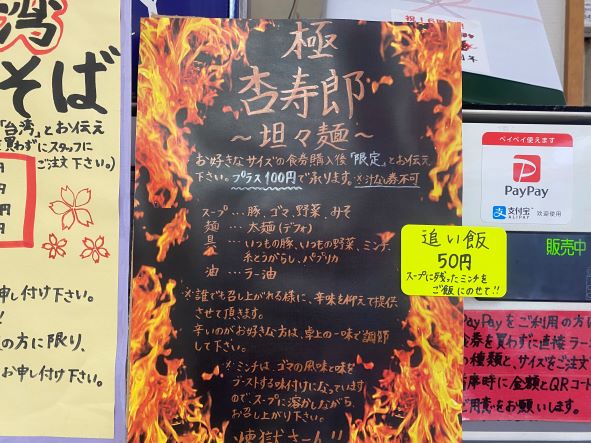 湾
そば
「台湾」とお伝え
買わずにスタッフに
ご注文下さい。)
申し付け下さい。
の方に限り、
お申し付け下さい。
極
杏寿郎
～坦々麺～
お好きなサイズの食券購入後「限定」とお伝え
下さい。プラス100円で承ります。※汁なし券不可
スープ…豚、ゴマ、野菜、みそ
麺…太麺(デフォ)
具…いつもの豚、いつもの野菜、ミンチ、
糸とうがらし、パプリカ
油…ラー油
※誰でも召し上がれる様に、辛味を抑えて提供
させて頂きます。
辛いのがお好きな方は、卓上の一味で調節
して下さい。
※ミンチは、ゴマの風味と味を
テーストする味付けになっています
ので、スープに溶かしながら、
お召し上がり下さい。
煉獄さーん!!
追い飯
50円
スープに残ったミンチを
ご飯にのせて!!
ペイペイ使えます
PayPay
支付宝
ALIPAY
欢迎使用
販売中
PayPayをご利用の方は
食券を買わずに直接ラー
の種類と、サイズをご注文
席時に金額とQRコード
ご用意をお願いします。